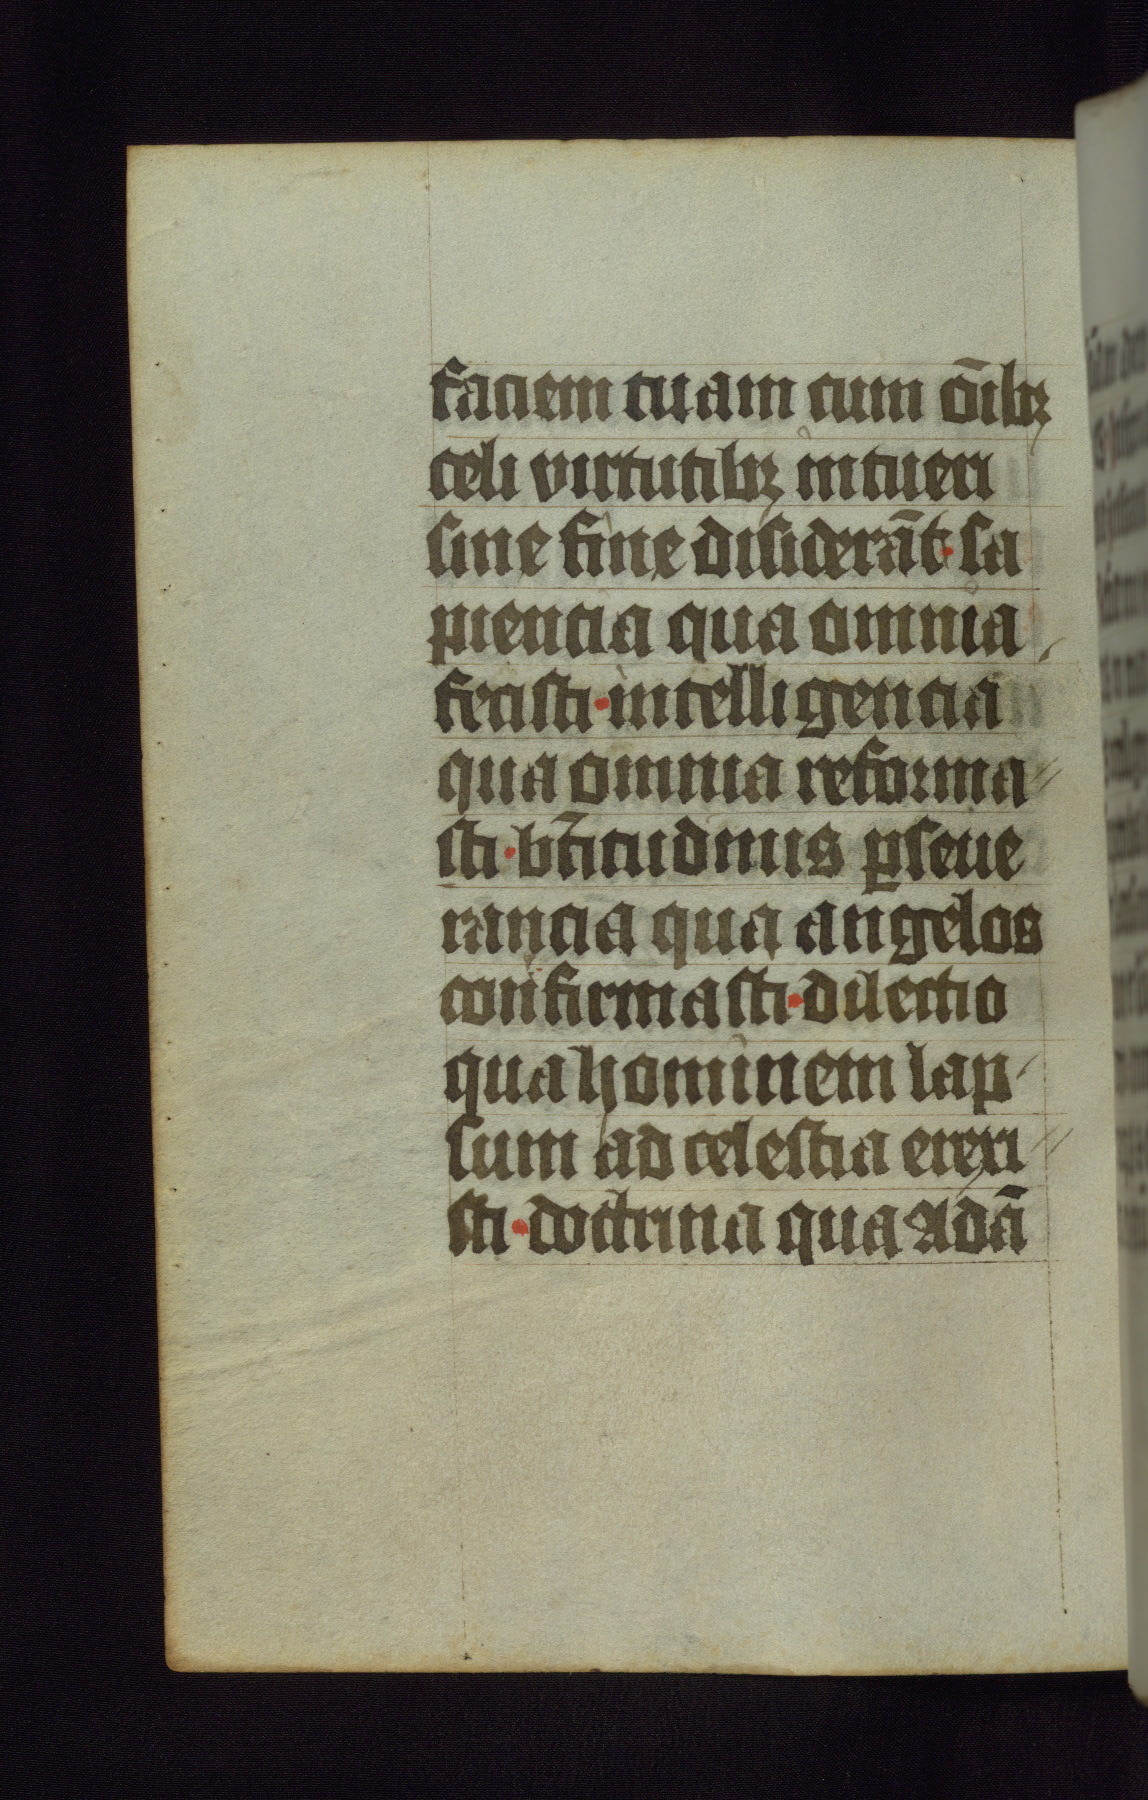 faciem tuam cum o̅ibꝫ
celi virtutibꝫ intueri
sine fine disidera̅t · sa
piencia qua omnia
fecisti · intelligencia
qua omnia reforma⸗
sti · bt̅itudinis ꝑseue
rancia qua angelos
confirmasti · dilectio
qua hominem lap⸗
sum ad celestia erexi⸗
sti · doctrina qua Ada̅